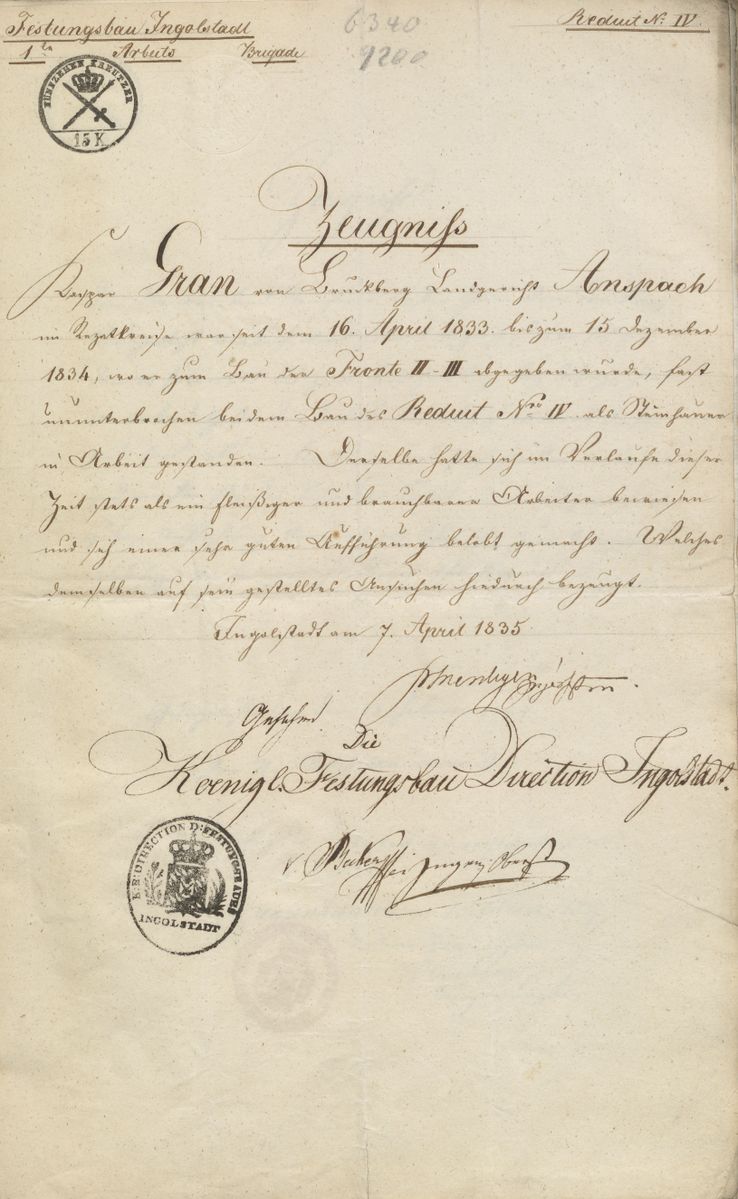 Festungsbau Ingolstadt
6340
Reduit No. IV.
1te Arbeits Brigade
9200
FÜNFZEHEN KREUTZER
15 K
Zeugniss
Kaspar Gran von Bruckberg Landgerichts Anspach
im Rezatkreise war seit dem 16. April 1833. bis zum 15 Dezember
1834, wo er zum Bau der Fronte II-III abgegeben wurde, fast
ununterbrochen bei dem Bau des Reduit Nro IV. als Steinhauer
in Arbeit gestanden. Derselbe hatte sich im Verlaufe dieser
Zeit stets als ein fleißiger und brauchbarer Arbeiter bewiesen
und sich einer sehr guten Aufführung belobt gemacht. Welches
demselben auf sein gestelltes Ansuchen hiedurch bezeugt.
Ingolstadt am 7. April 1835.
Gesehen
Die
Koenigl. Festungsbau Direction Ingolstadt.
Ingen: Oberst
K: B: DIRECTION D: FESTUNGSBAUES
INGOLSTADT